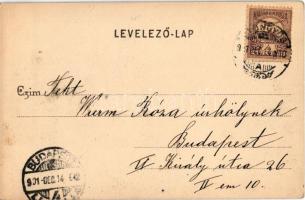 LEVELEZŐ-LAP
Czim: Tekt
Wurm Róza úrhölynek
Budapest
VI Király utcza 26
IV em 10.
BUDAPEST
901 DEC. 14